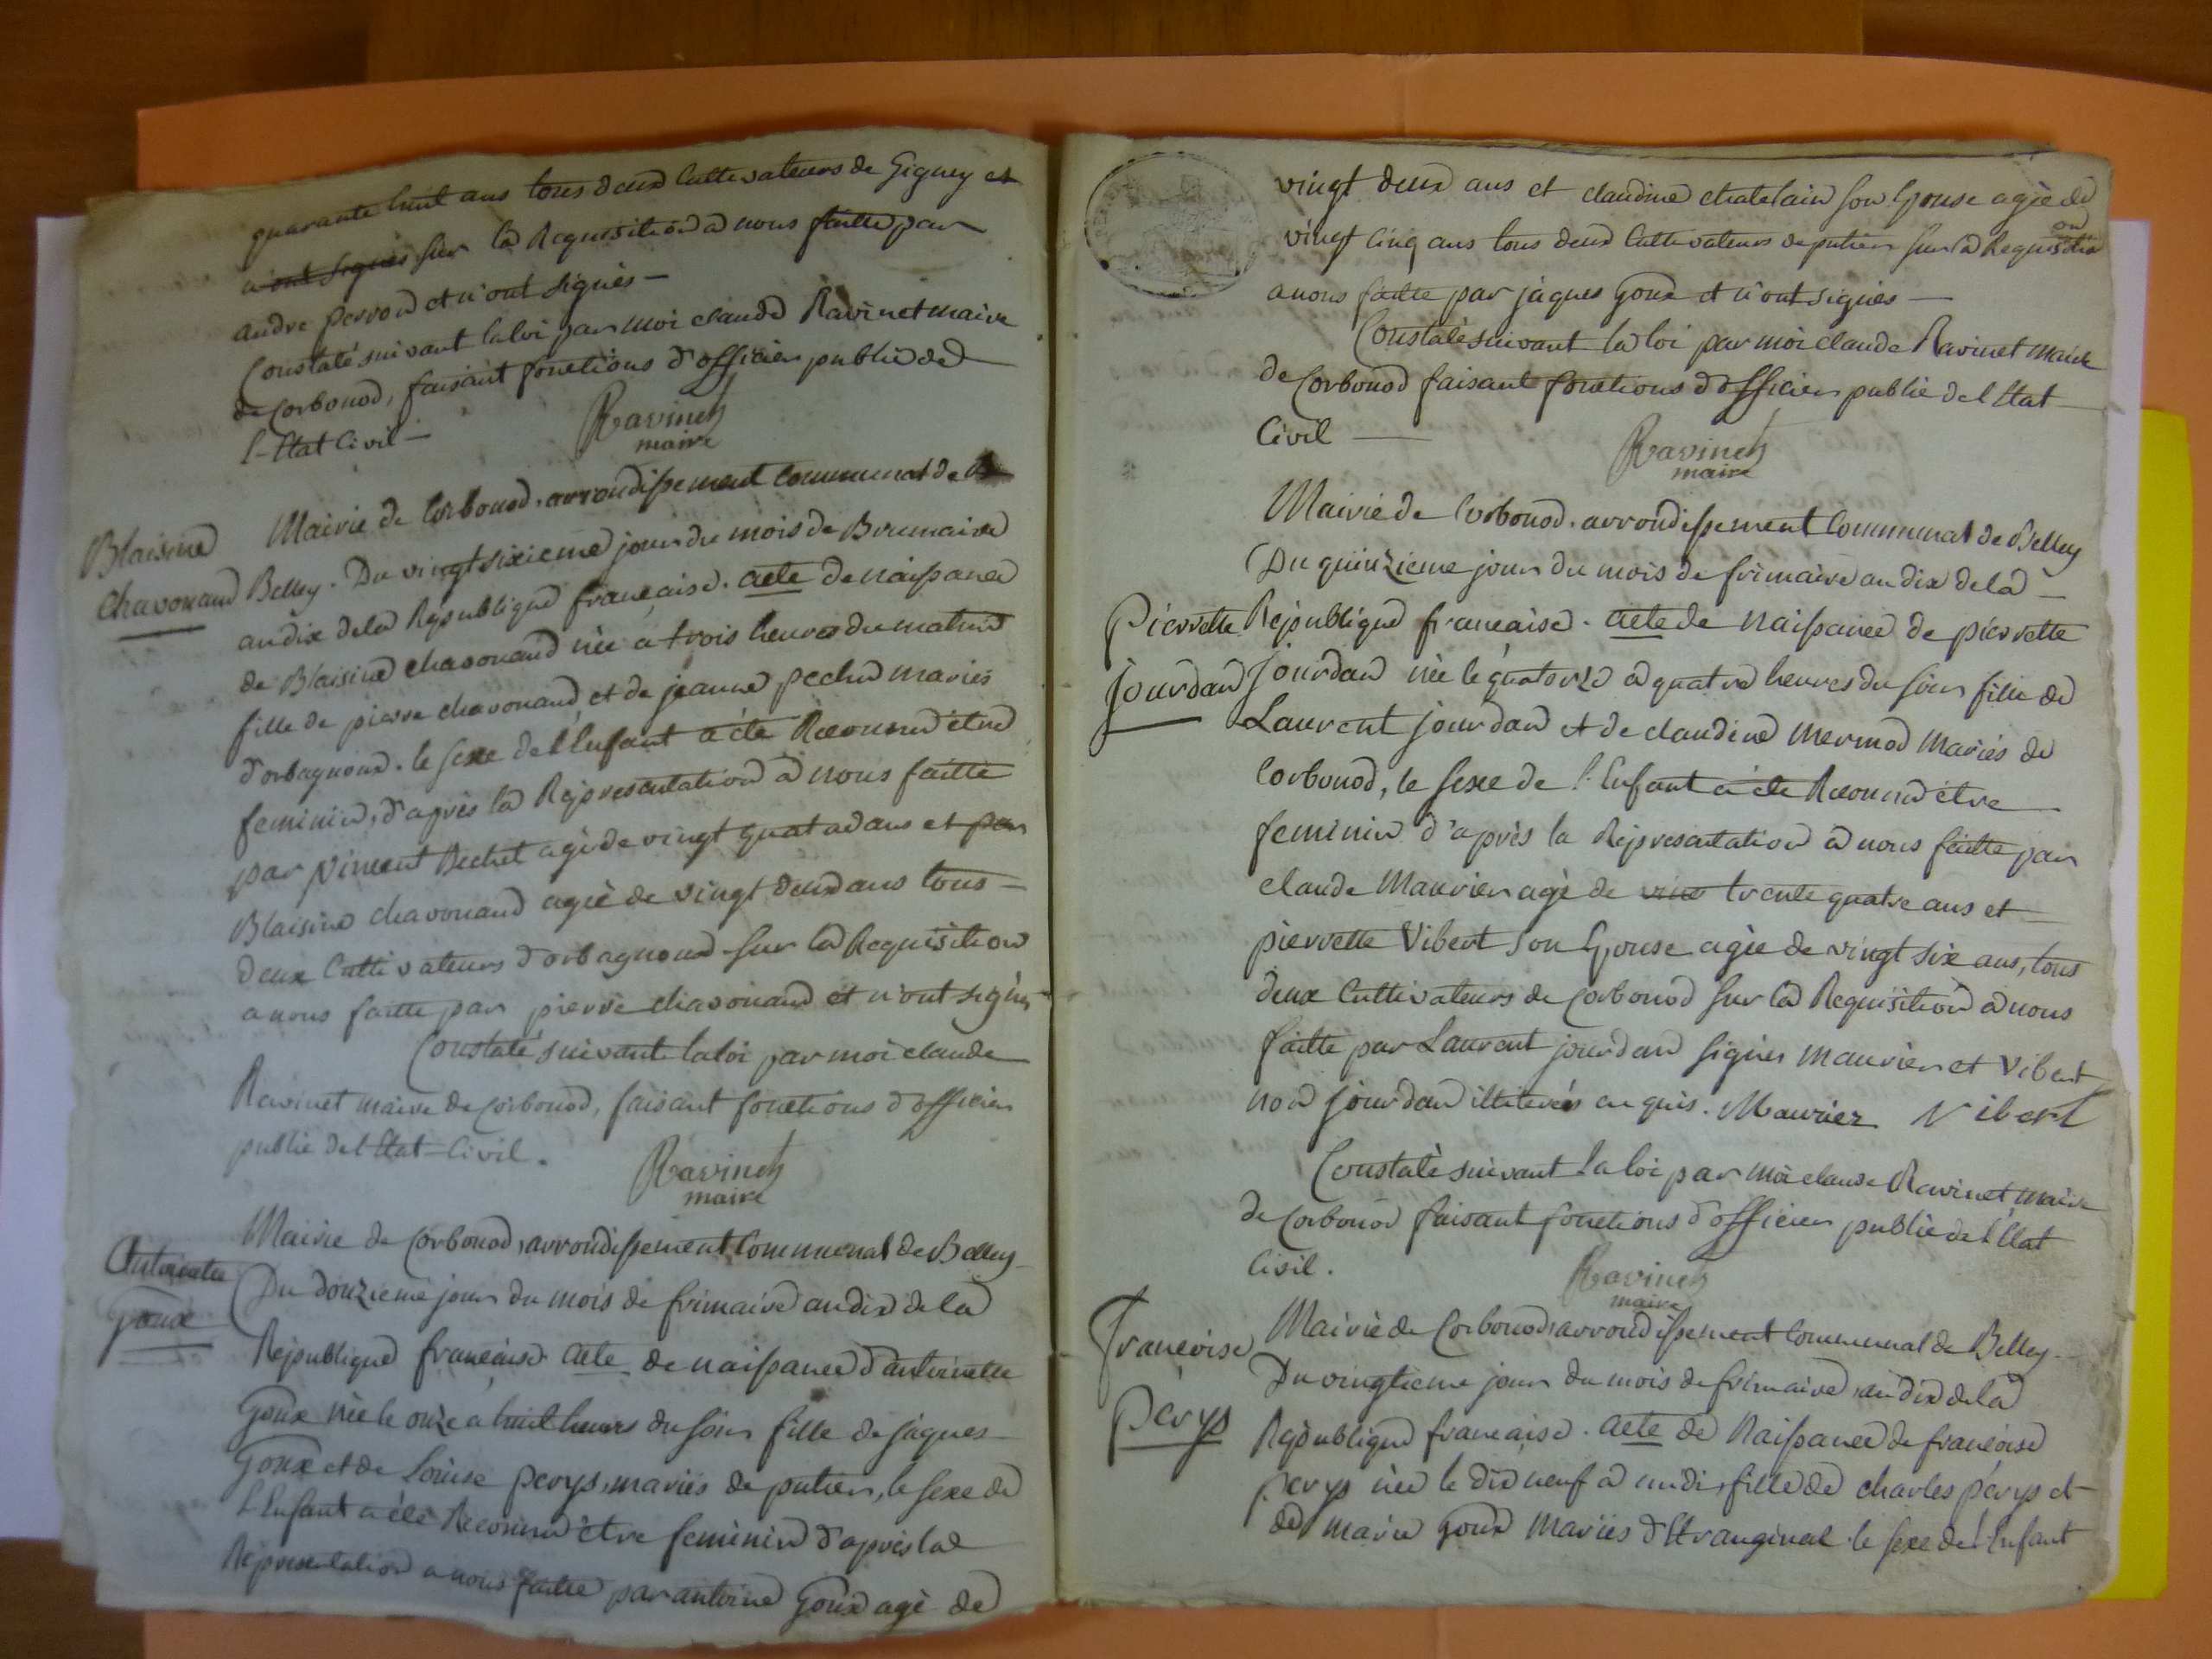 quarante huit ans tous deux Cultivateurs de Gignez et
n'ont signés sur la Requisition a nous faitte par
andre perron et n'ont signés —
Constaté suivant la loi par moi claude Ravinet maire
de Corbonod, faisant fonctions d'officier public de
l'Etat Civil —
Ravinet
maire
Mairie de Corbonod, arrondissement Communal de
Blaisine
Chavonand
Belley. Du vingt sixieme jour du mois de Brumaire
an dix de la Republique francaise. acte de naissance
de Blaisine chavonand née a trois heures du matin
fille de pierre chavonand et de jeanne pechu mariés
d'orbagnoux. le sexe de l'Enfant a été Reconnu être
feminin, d'après la Representation a nous faitte
par Vincent Bechet agé de vingt quatre ans et par
Blaisine chavonand agée de vingt deux ans tous —
deux Cultivateurs d'orbagnoux sur la Requisition
a nous faitte par pierre chavonand et n'ont signés
Constaté suivant la loi par moi claude
Ravinet maire de Corbonod, faisant fonctions d'officier
public de l'Etat-Civil.
Ravinet
maire
Mairie de Corbonod, arrondissement Communal de Belley
Antoinette
Goux
Du douzieme jour du mois de frimaire an dix de la
Republique francaise acte de naissance d'antoinette
Goux née le onze a huit heures du soir fille de jaques
Goux et de Louise perys, mariés de putier, le sexe de
l'Enfant a été Reconnu être feminin d'après la
Representation a nous faitte par antoine Goux agé de
vingt deux ans et claudine chatelain son Epouse agée de
vingt cinq ans tous deux Cultivateurs de putier sur la Requisition
a nous faitte par jaques Goux et n'ont signés —
Constaté suivant la loi par moi claude Ravinet maire
de Corbonod faisant fonctions d'officier public de l'Etat
Civil —
Ravinet
maire
Mairie de Corbonod, arrondissement Communal de Belley
Du quinzieme jour du mois de frimaire an dix de la —
Pierrette
Jourdan
Republique francaise. acte de Naissance de pierrette
Jourdan née le quatorze a quatre heures du soir fille de
Laurent jourdan et de claudine Mermod mariés de
Corbonod, le sexe de l'Enfant a été Reconnu être
feminin d'après la Representation a nous faitte par
claude Maurier agé de vint trente quatre ans et —
pierrette Vibert son Epouse agée de vingt six ans, tous
deux Cultivateurs de Corbonod sur la Requisition a nous
faitte par Laurent jourdan signés maurier et Vibert
non jourdan illiterés en quis. Maurier Vibert
Constaté suivant la loi par moi claude Ravinet maire
de Corbonod faisant fonctions d'officier public de l'Etat
Civil.
Ravinet
maire
Francoise
Pérys
Mairie de Corbonod, arrondissement Communal de Belley
Du vingtieme jour du mois de frimaire, an dix de la
Republique francaise. acte de Naissance de francoise
perys née le dix neuf a midi, fille de charles pérys et
de marie Goux mariés d'Etranginal le sexe de l'Enfant